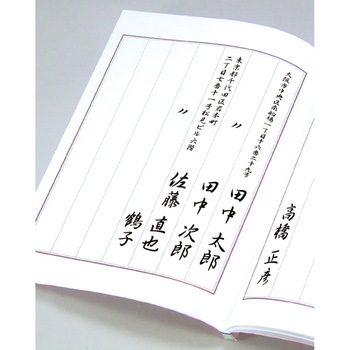 大阪市中央区南船場一丁目十六番二十九号
高橋 正彦
東京都千代田区岩本町
二丁目七番十一号松見ビル六階
田中 太郎
〃
田中 次郎
〃
佐藤 直也
鶴子